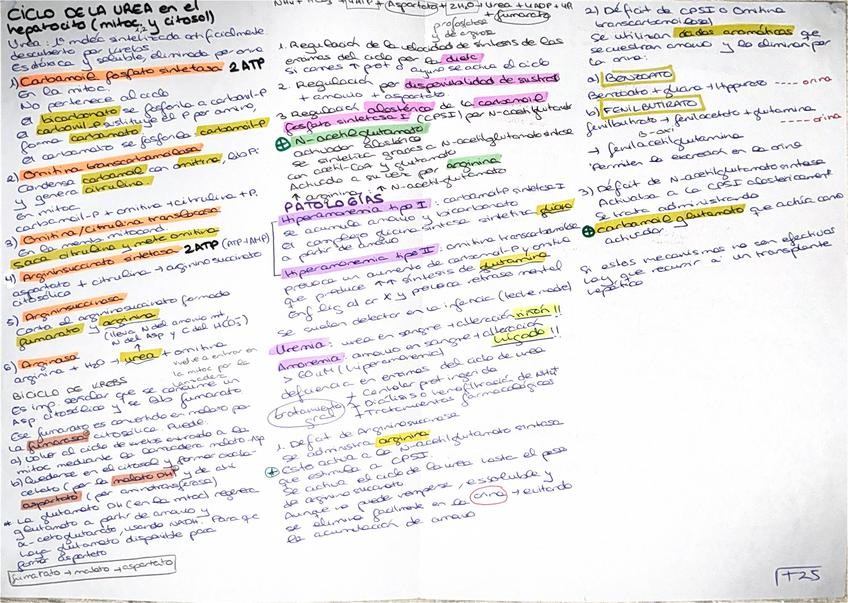 CICLO DE LA UREA en el
hepatocito (mitoc. y citosol)
Urea: 1ª moléc sintetizada artificialmente
descubierto por Krebs
Es atóxica y soluble, eliminada por orina
1) Carbamoil fosfato sintetasa 2 ATP
En la mitoc.
No pertenece al ciclo
el bicarbonato se fosforila a carbonil-P
el carbonil-P sustituye el P por amino,
forma carbamato
el carbamato se fosforila: carbamoil-P
2) Ornitina transcarbamolasa
Condensa carbamoil con ornitina, libPi
y genera citrulina.
En mitoc
carbamoil-P + ornitina → citrulina + Pi
3) Ornitina/citrulina translocasa
En la memb mitocond.
saca citrulina y mete ornitina
4) Argininsuccinato sintetasa 2 ATP (ATP→AMP)
aspartato + citrulina → arginino succinato
citosólica
5) Argininsuccinasa
Corta el argininosuccinato formado
fumarato y arginina
(lleva N del amonio mit,
N del Asp y C del HCO3-)
6) Arginasa
arginina + H2O → urea + ornitina
vuelve a entrar en
la mitoc por la
lanzadera
BICICLO DE KREBS
Es imp. señalar que se consume un
Asp citosólico y se lib fumarato
Ese fumarato es convertido en malato por
la fumarasa citosólica. Puede:
a) Volver al ciclo de Krebs entrando a la
mitoc mediante la lanzadera malato-Asp
b) Quedarse en el citosol y formar oxala-
cetato (por la malato DH) y de ahí
aspartato (por aminotransferasa)
* La glutamato DH (en la mitoc) regenera
glutamato a partir de amonio y
α-cetoglutarato, usando NADH. Para que
haya glutamato disponible para
formar aspartato
fumarato → malato → aspartato
Aspartato + 2H2O → urea + 4ADP + 4P
fumarato
1. Regulación de la velocidad de síntesis de las
enzimas del ciclo por la dieta
Si comes ↑ prot o ayuno se activa el ciclo
2. Regulación por disponibilidad de sustrat
+ amonio + aspartato
3. Regulación alostérica de la carbamoil
fosfato sintetasa I (CPSI) por N-acetilglutamato
⊕ N-acetilglutamato
activador alostérico
se sintetiza gracias a N-acetilglutamato sintasa
con acetil-CoA y glutamato
Activado a su vez por arginina
↑ arginina: ↑ N-acetilglutamato
PATOLOGÍAS
Hiperamonemia tipo I: carbamoil-P sintetasa I
se acumula amonio y bicarbonato
el complejo glicina sintasa sintetiza glicina
a partir de amonio
Hiperamonemia tipo II: ornitina transcarbamolasa
provoca un aumento de carbamoil-P y ornitina
que produce ↑↑ síntesis de glutamina
Enf lig al cr X y provoca retraso mental
se suelen detectar en la infancia
Uremia: urea en sangre + alteración riñón!!
Amonemia: amonio en sangre + alteración hígado!!
> 60 μM (hiperamonemia)
deficiencia en enzimas del ciclo de urea
tratamiento gral
+ Controlar prot ingerida
+ Diálisis o hemofiltración de NH4+
+ Tratamientos farmacológicos
1. Déficit de Argininosuccinasa
se administra arginina
⊕ Esto activa a la N-acetilglutamato sintasa
que estimula a CPSI
Se activa el ciclo de la urea hasta el paso
de arginino succinato
Aunque no puede romperse, es soluble y
se elimina fácilmente en la orina → evitando
la acumulación de amonio
2) Déficit de CPSI o Ornitina
transcarbamoilasa
Se utilizan ácidos aromáticos que
secuestran amonio y lo eliminan por
la orina:
a) BENZOATO
Benzoato + glicina → Hipurato ---- orina
b) FENILBUTIRATO
fenilbutirato → fenilacetato + glutamina
β-oxi
→ fenilacetilglutamina ---- orina
Permiten la excreción en la orina
3) Déficit de N-acetilglutamato sintasa
Activaba a la CPSI alostéricamente
se trata administrando
⊕ carbamoil glutamato que actúa como
activador
Si estos mecanismos no son efectivos
hay que recurrir a un transplante
hepático
T25